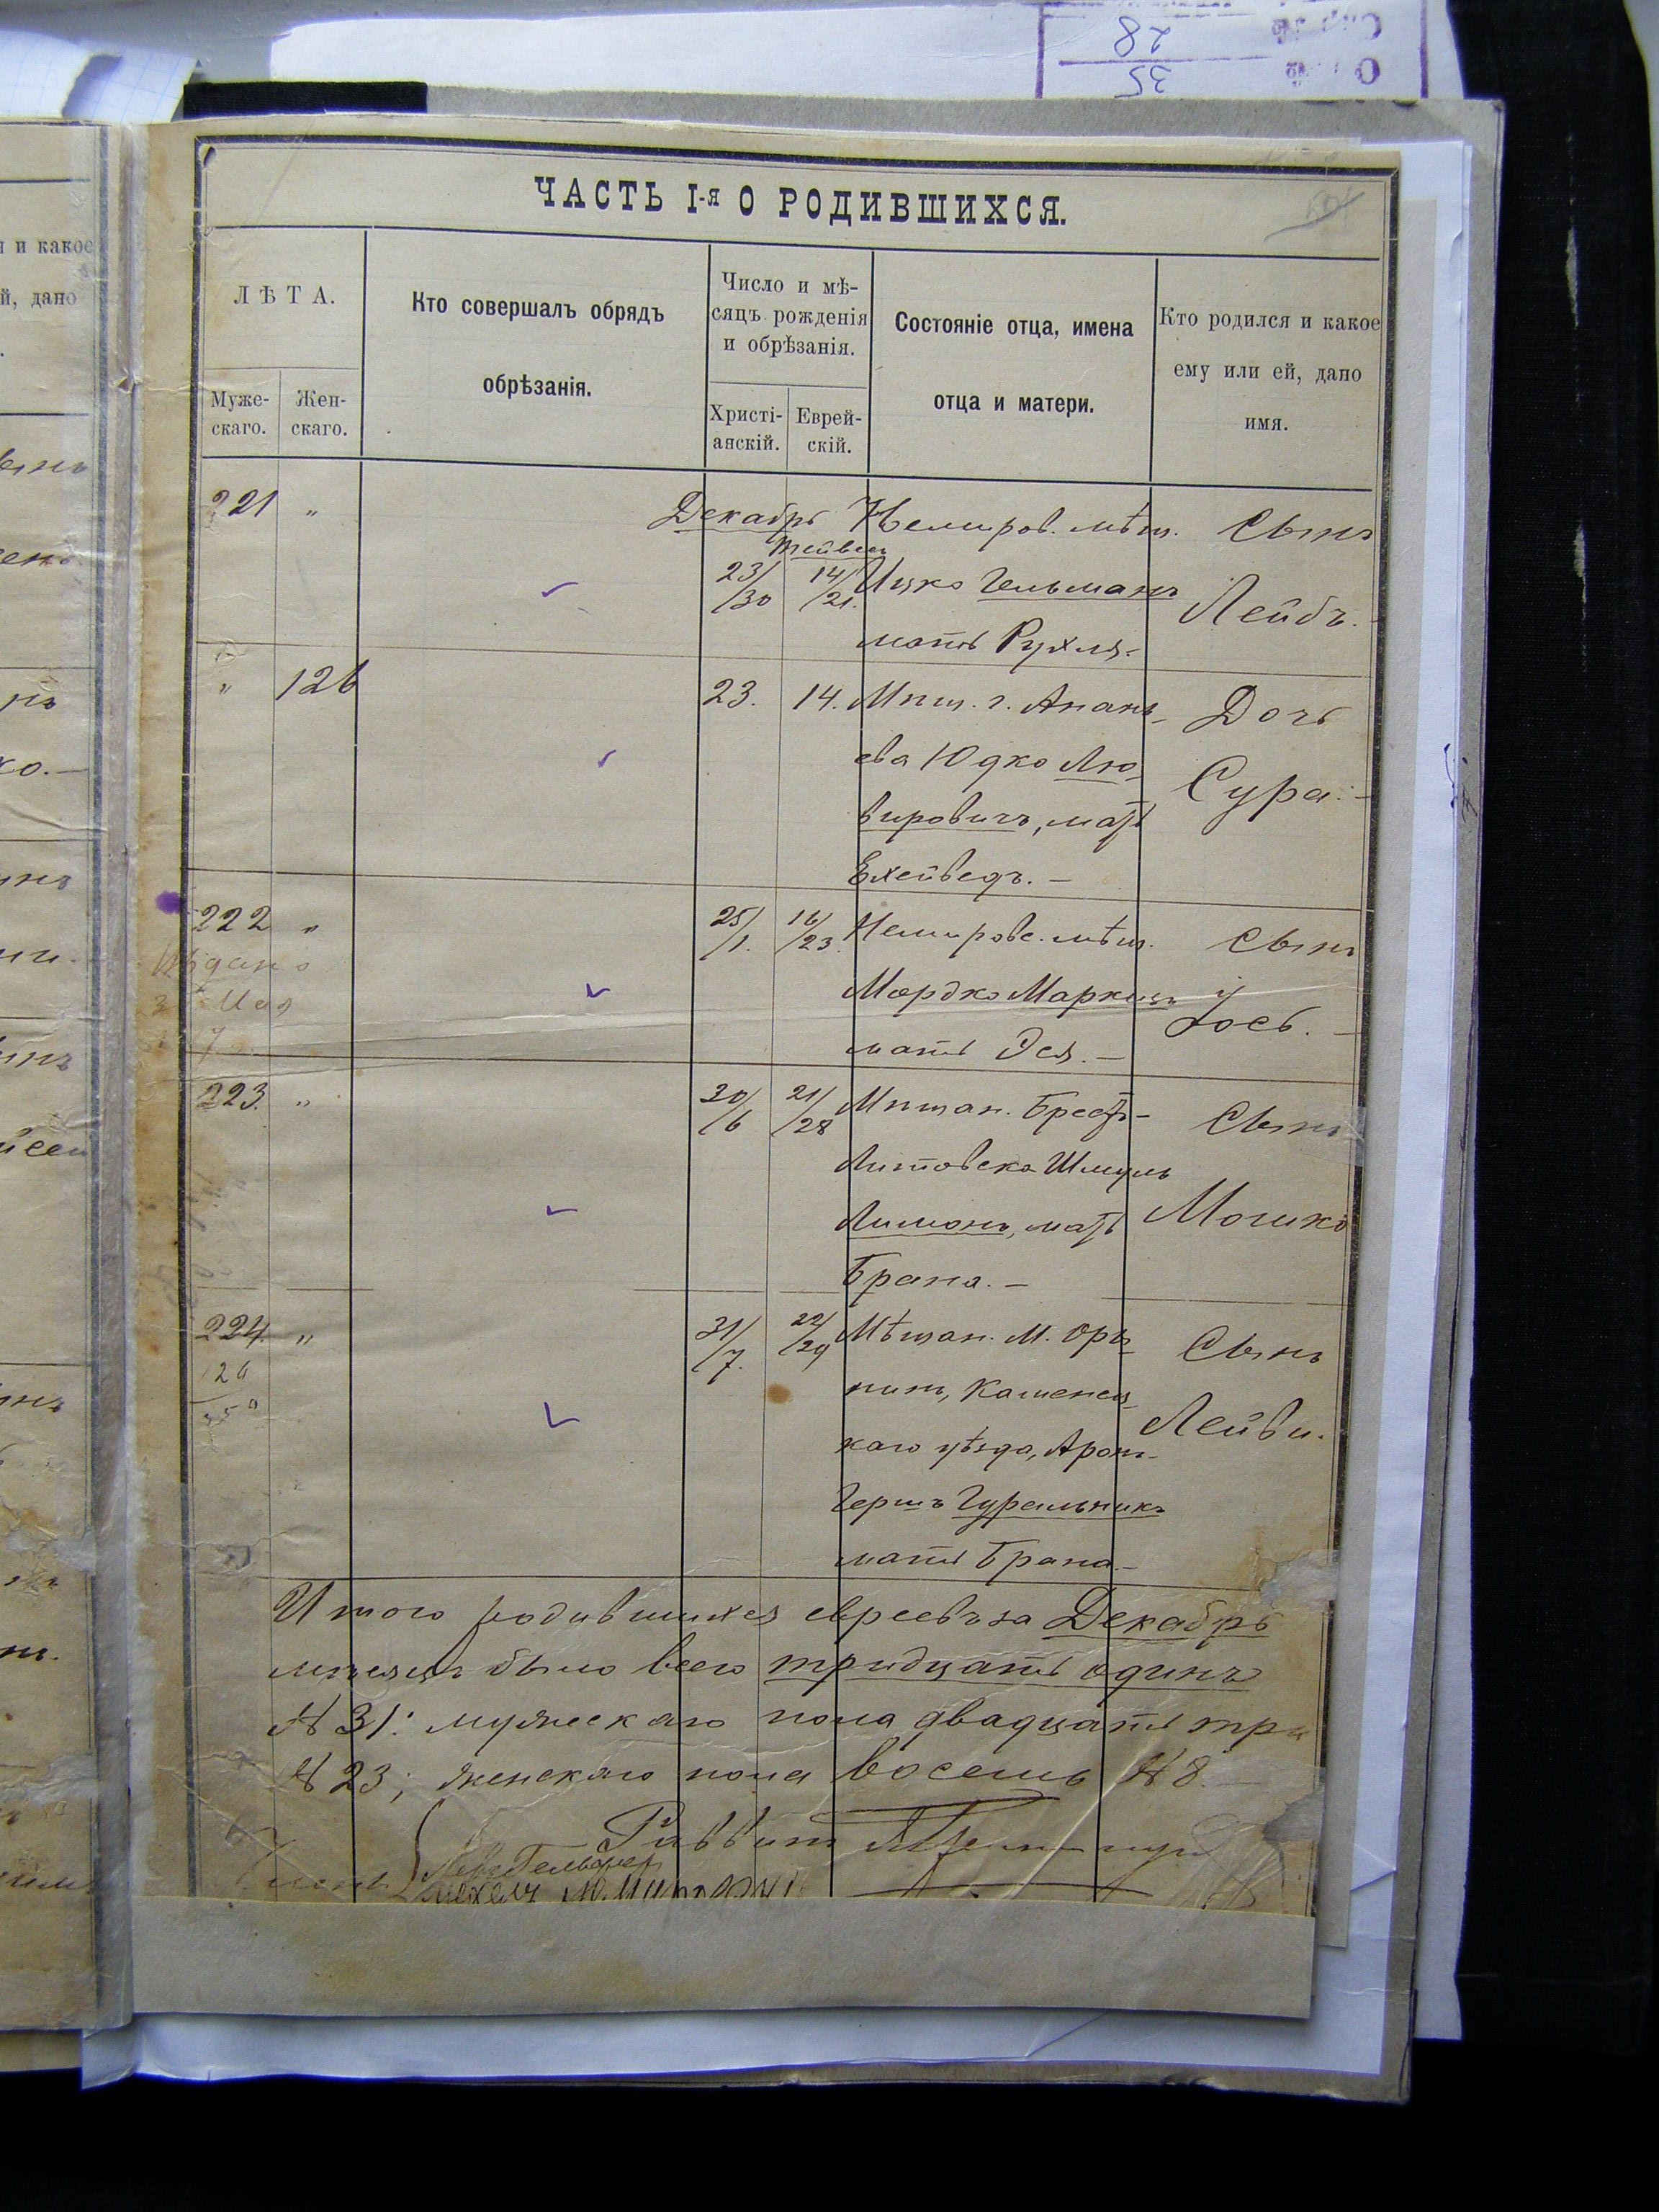 28
35
ЧАСТЬ I-я О РОДИВШИХСЯ.
ЛѢТА.
Муже-
скаго.
Жен-
скаго.
Кто совершалъ обрядъ
обрѣзанія.
Число и мѣ-
сяцъ рожденія
и обрѣзанія.
Христі-
анскій.
Еврей-
скій.
Состояніе отца, имена
отца и матери.
Кто родился и какое
ему или ей, дано
имя.
221 " Декабрь Немиров. мѣщ. Сынъ
Тейвес
23/30 14/21. Ицко Гельманъ Лейбъ.
мать Рухля.
" 126 23. 14. Мѣщ. г. Анань- Дочь
ева Юдко Лю-
вировичъ, мать Сура.
Ехейведъ. —
222 " 25/1. 16/23. Немировс. мѣщ. Сынъ
Мордко Маркизъ Іось. —
мать Эся. —
223. " 30/6 21/28 Мѣщан. Брестъ- Сынъ
Литовска Шмуль
Лимонъ, мать Мошко
Брана. —
224. " 31/7. 22/29 Мѣщан. м. Оры- Сынъ
126
350
нинъ, Каменец-
каго уѣзда, Аронъ- Лейви.
Гершъ Гуральникъ
мать Брана —
Итого родившихся евреевъ за Декабрь
мѣсяцъ было всего тридцать одинъ
№ 31: мужескаго пола двадцать три
№ 23; женскаго пола восемь № 8. —
Раввинъ